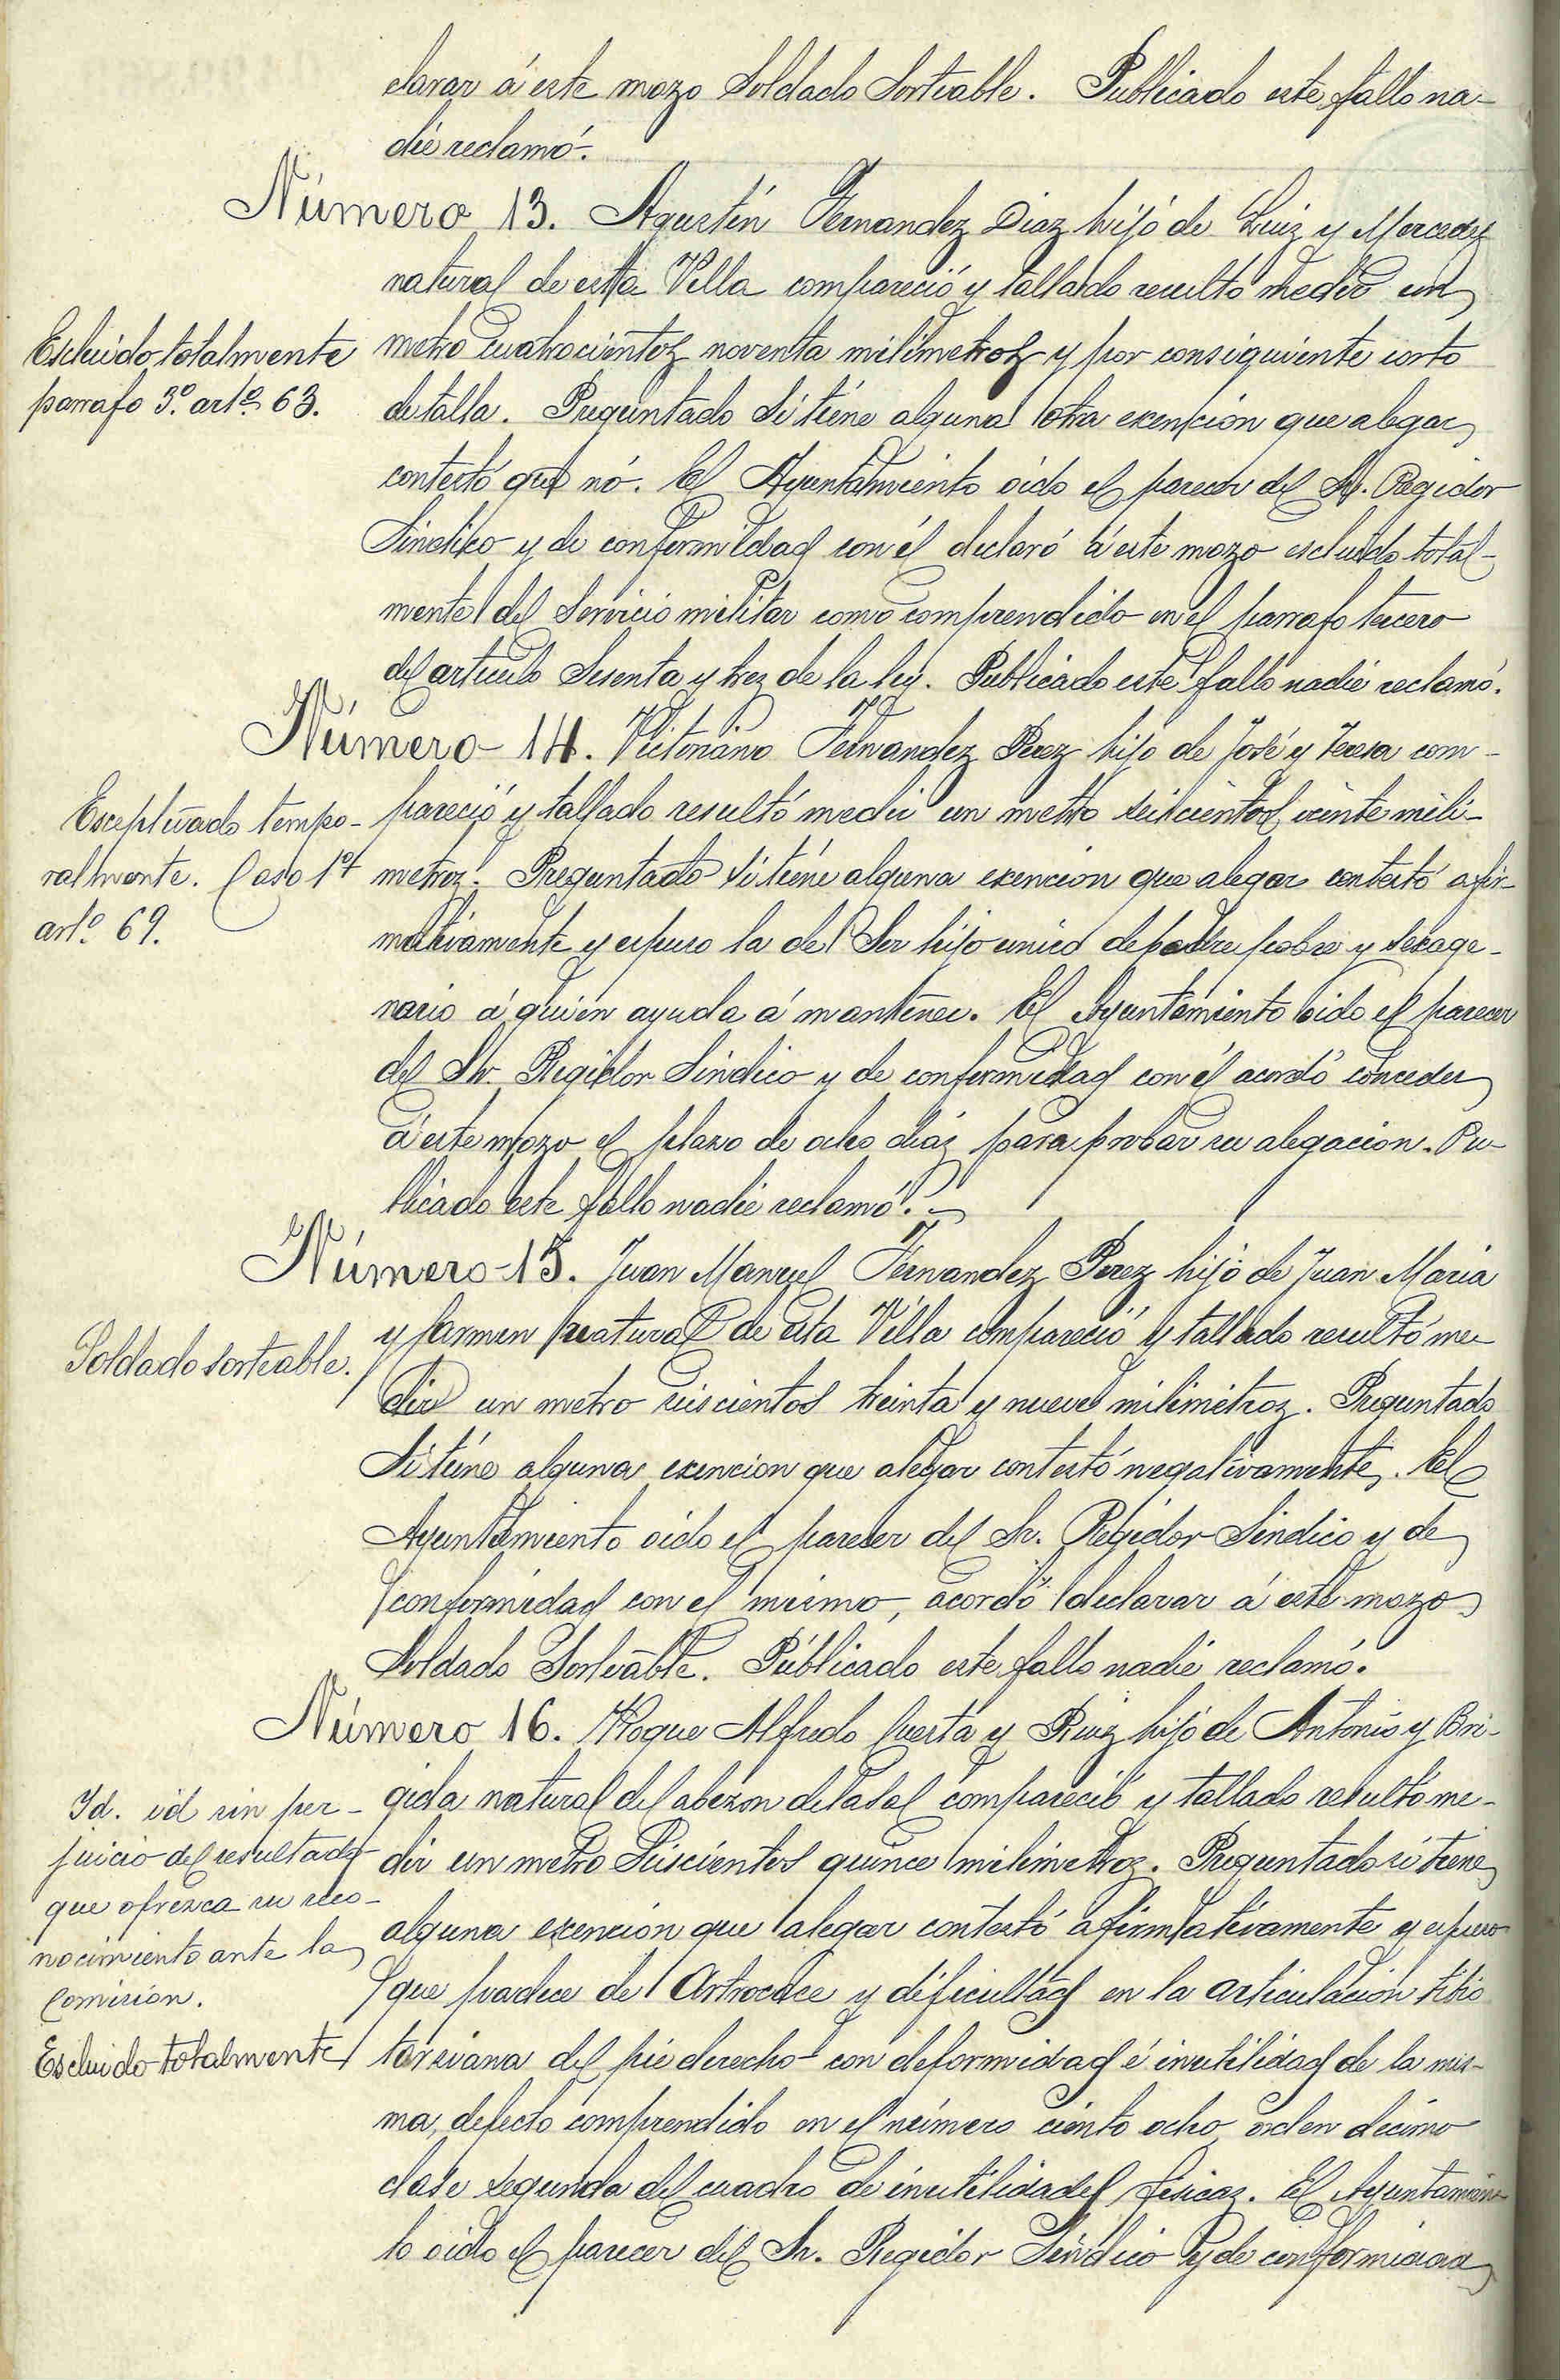 clarar á este mozo Soldado Sorteable. Publicado este fallo na-
die reclamó.
Número 13. Agustín Fernandez Diaz hijo de Luiz y Mercedez
natural de esta Villa compareció y tallado resultó medir un
Escluido totalmente
parrafo 3º. artº. 63.
metro cuatrocientoz noventa milimetroz y por consiguiente corto
de talla. Preguntado si tiene alguna otra exención que alegar
contestó que nó. El Ayuntamiento oido el parecer del Sr. Regidor
Sindico y de conformidad con él declaró á este mozo escluido total-
mente del Servicio militar como comprendido en el parrafo tercero
del articulo Sesenta y trez de la ley. Publicado este fallo nadie reclamó.
Número 14. Victoriano Fernandez Perez hijo de José y Teresa com-
Exceptuado tempo-
ralmente. Caso 1º
artº. 69.
pareció y tallado resultó medir un metro seiscientos veinte mili-
metroz. Preguntado si tiene alguna exencion que alegar contestó afir-
mativamente y espuso la de Ser hijo unico de padre pobre y sexage-
nario á quien ayuda á mantener. El Ayuntamiento oido el parecer
del Sr. Regidor Sindico y de conformidad con él acordó conceder
á este mozo el plazo de ocho díaz para probar su alegacion. Pu-
blicado este fallo nadie reclamó.
Número 15. Juan Manuel Fernandez Perez hijo de Juan Maria
Soldado sorteable.
y Carmen natural de esta Villa compareció y tallado resultó me-
dir un metro seiscientos treinta y nueve milimetroz. Preguntado
Si tiene alguna exencion que alegar contestó negativamente. El
Ayuntamiento oido el parecer del Sr. Regidor Sindico y de
conformidad con el mismo, acordó declarar á este mozo
Soldado Sorteable. Públicado este fallo nadie reclamó.
Número 16. Roque Alfredo Cuesta y Ruiz hijo de Antonio y Bri-
Id. id sin per-
juicio del resultado
que ofrezca su reco-
nocimiento ante la
Comisión.
Escluido totalmente
gida natural de Cabezon de la Sal compareció y tallado resultó me-
dir un metro Seiscientos quince milimetroz. Preguntado si tiene
alguna exención que alegar contestó afirmativamente y espuso
que padece de Artrocace y dificultad en la articulación tibio
tarsiana del pie derecho con deformidad é inutilidad de la mis-
ma, defecto comprendido en el número ciento ocho orden décimo
clase segunda del cuadro de inutilidades fisicaz. El Ayuntamien-
to oido el parecer del Sr. Regidor Sindico y de conformidad